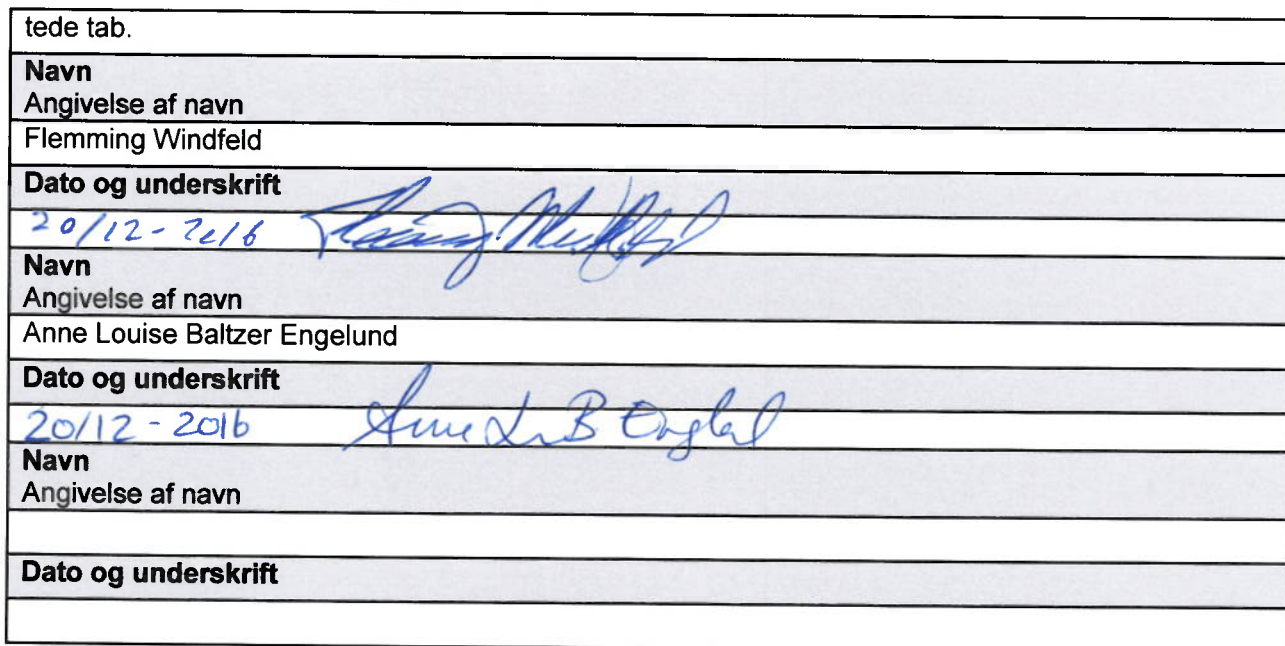 tede tab.
Navn
Angivelse af navn
Flemming Windfeld
Dato og underskrift
20/12-2016 Flemming Windfeld
Navn
Angivelse af navn
Anne Louise Baltzer Engelund
Dato og underskrift
20/12-2016 Anne L. B Engelund
Navn
Angivelse af navn
Dato og underskrift